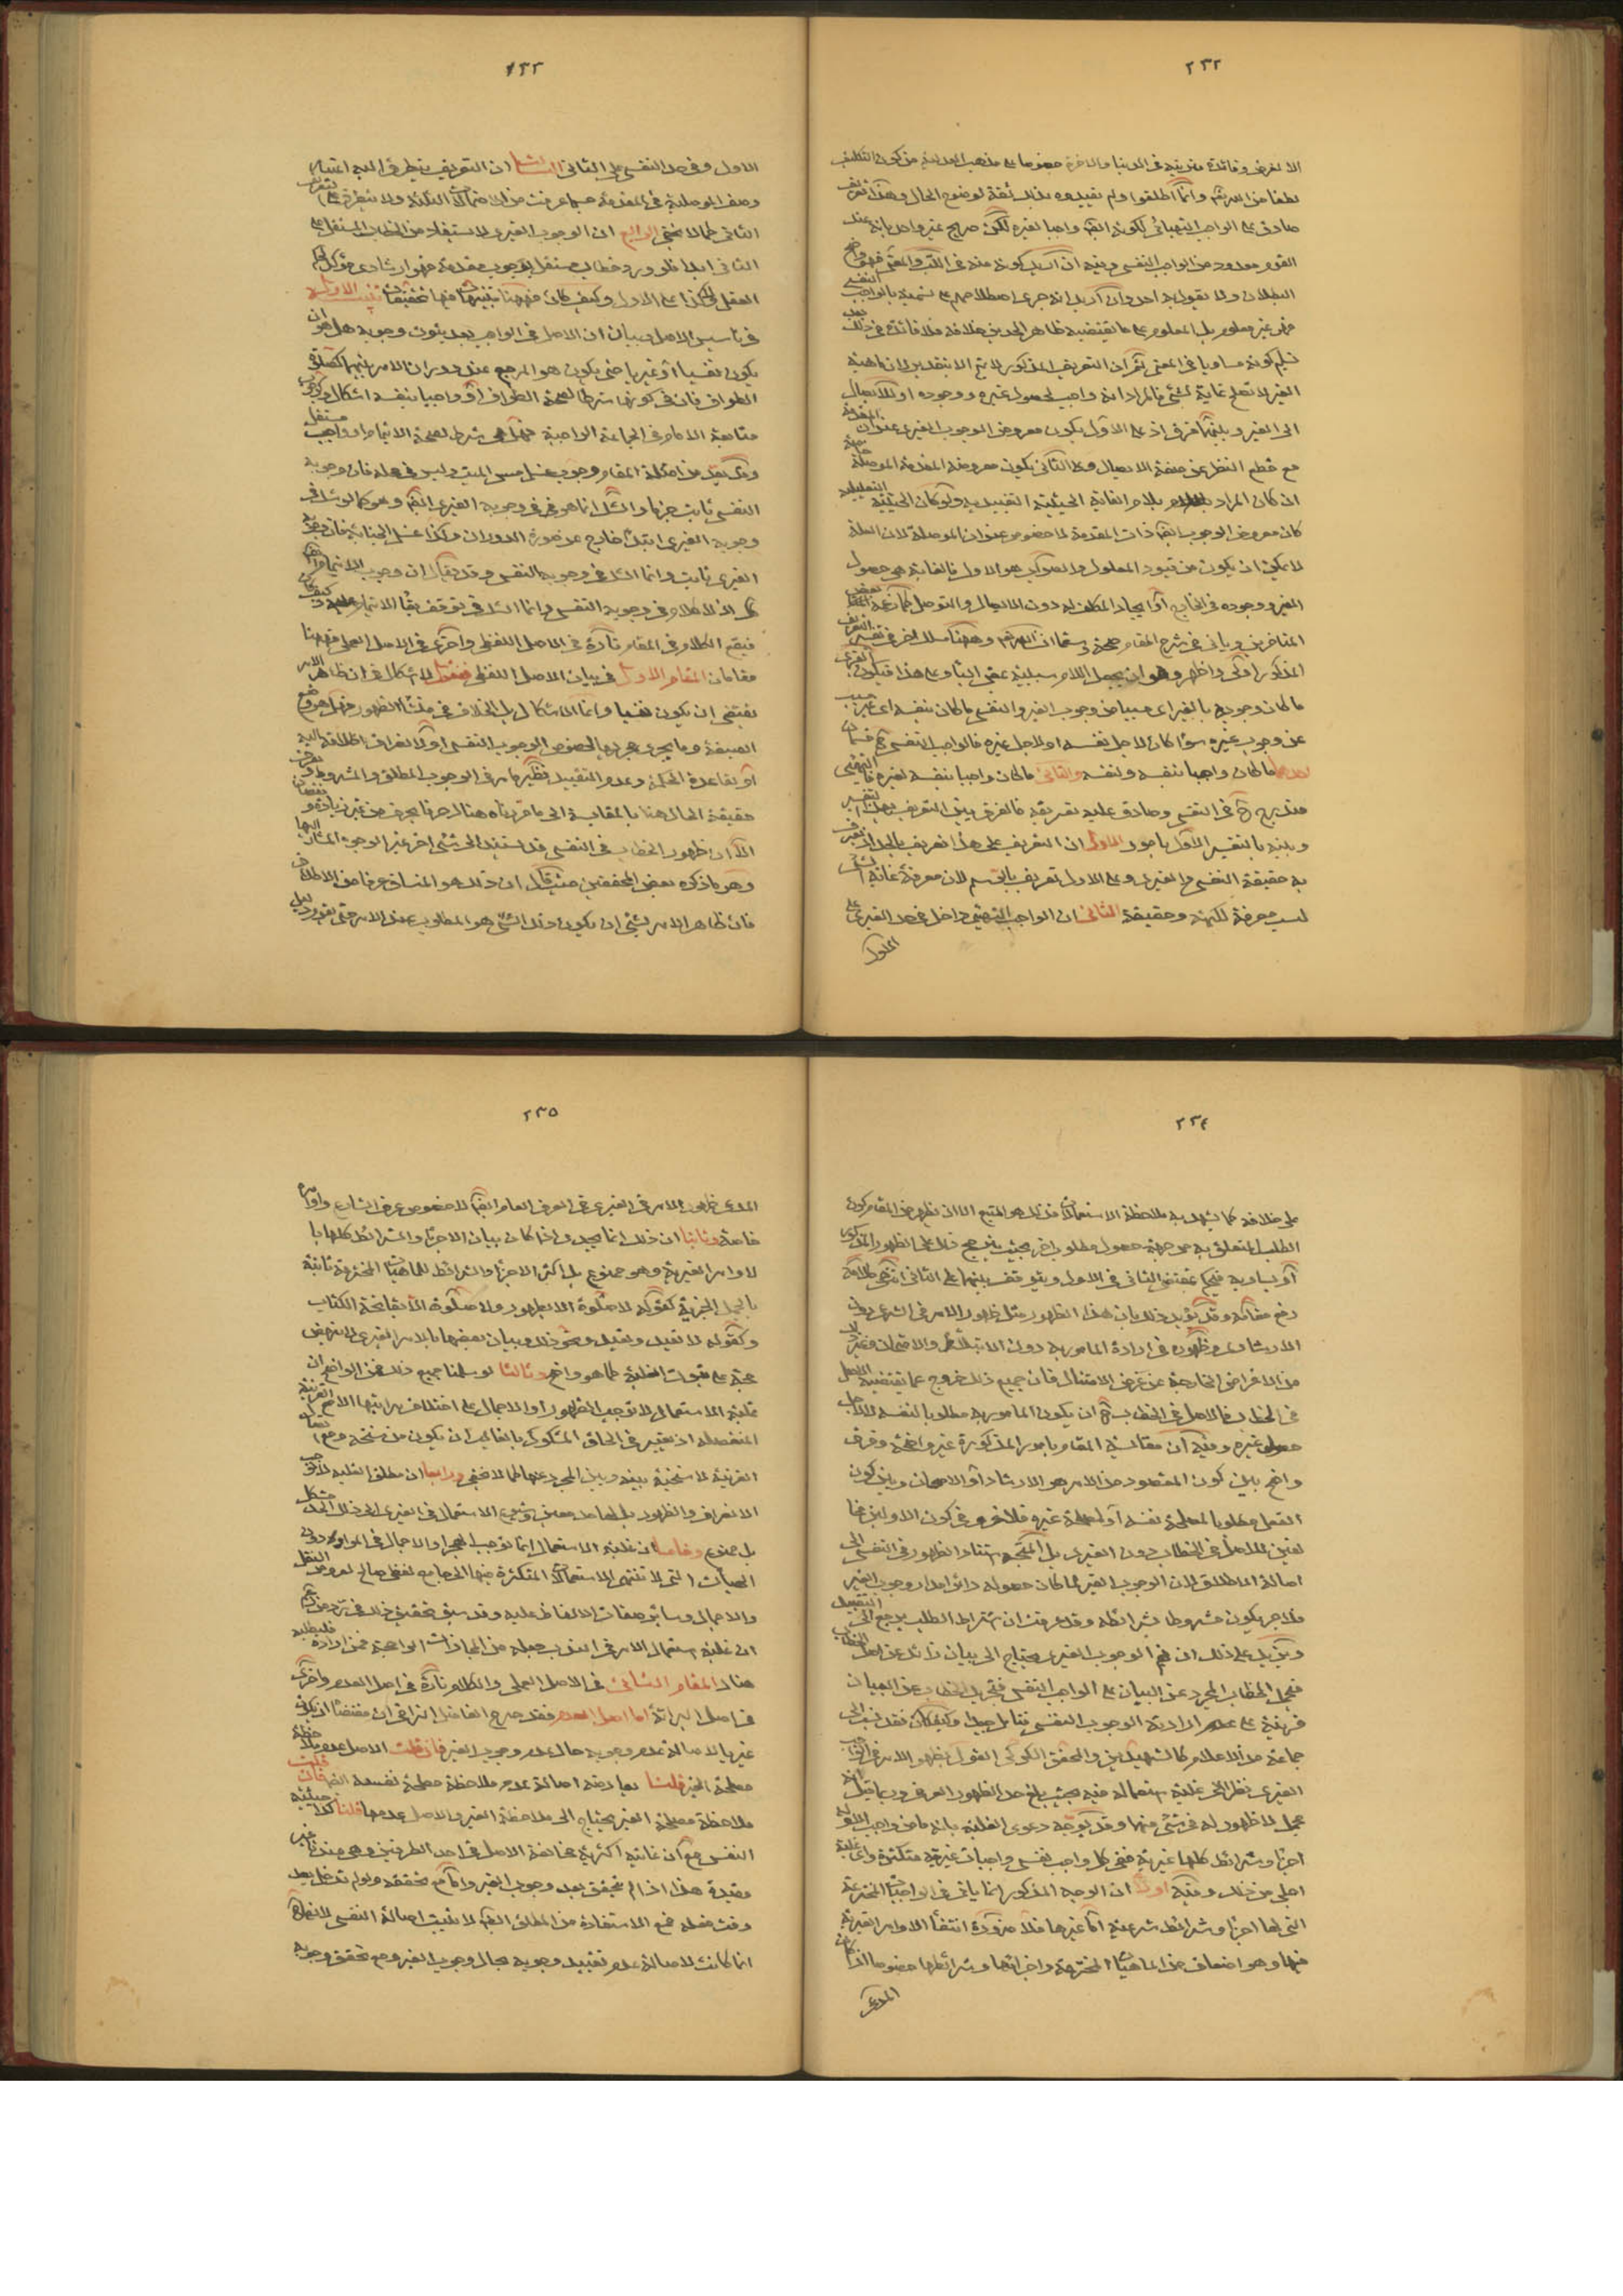 ٢٣٢
الا لغرض وفائدة مترتبة في الدنيا والاخرة خصوصا على مذهب العدلية من كون التكليف
لطفا من الله تعالى وانما اطلقوا ولم تقيدوه بذلك ثقة لوضوح الحال وهذا تعريف
صادق على الواجب التهيائي لكونه واجبا لغيره لكن صريح غير واحد بانه عند
القوم معدود من الواجب النفسي وفيه ان كونه منه في اللب والمعنى فهو واضح
البطلان ولا يقول به احد وان اريد انه جرى اصطلاحهم على تسميته بالواجب النفسي
فهو غير معلوم بل المعلوم على ما يقتضيه ظاهر الحدين خلافه فلا فائدة في ذلك بعد
تسليم كونه مساويا في المعنى ثم ان التعريف المذكور لا يتم الا بتقدير لان ماهية
الغير لا تصلح غاية لشئ فالمراد انه واجب لحصول غيره ووجوده او للايصال
الى الغير وبينهما فرق اذ على الاول يكون معروض الوجوب الغيري عنوان المقدمة
مع قطع النظر عن صفة الايصال وعلى الثاني يكون معروضه المقدمة الموصلة خاصة
ان كان المراد بلام الغاية الحيثية التقييدية ولو كان الحيثية التعليلية
كان معروض الوجوب ذات المقدمة لا خصوص عنوان الموصلة لان العلة
لا يمكن ان يكون من قيود المعلول والصواب هو الاول فالغاية هي حصول
الغير ووجوده في الخارج او ايجاد المكلف له دون الايصال والتوصل كما زعمه بعض
المتاخرين وياتي في شرح المقام صحة وسقما ان شاء الله وهيهنا مسلك اخر في تفسير التعريف
المذكور اولى واظهر وهو ان يجعل اللام سببية بمعنى الباء وعلى هذا فيكون الغيري
ما كان وجوبه بالغير اي مسببا من وجوب الغير والنفسي ما كان بنفسه اي غير مسبب
عن وجوب غيره سواء كان لاجل نفسه او لاجل غيره فالواجب النفسي ح قسمان
احدهما ما كان واجبا بنفسه ولنفسه والثاني ما كان واجبا بنفسه لغيره فالتهيئي
مندرج ح في النفسي وصادق عليه تعريفه فالفرق بين التعريف بهذا التفسير
وبينه بالتفسير الاول بامور الاول ان التعريف على هذا تعريف بالحد اذ يعرف
به حقيقة النفسي والغيري وعلى الاول تعريف بالرسم لان معرفة غاية الشئ
ليست معرفة لكنهه وحقيقته الثاني ان الواجب التهيئي داخل في حد الغيري على
الاول
٢٣٣
الاول وفي حد النفسي على الثاني الثالث ان التعريف يتطرق اليه اعتبار
وصف الموصلية في المقدمة حسبما عرفت من الاحتمالات الثلثة ولا يتطرق على التعريف
الثاني كما لا يخفى الرابع ان الوجوب الغيري لا يستفاد من الخطاب المستقل على
الثاني ابدا فلو ورد خطاب مستقل بوجوب مقدمة فهو ارشادي مؤكد لحكم
العقل ولا كذا على الاول وكيف كان فهيهنا تنبيهات فيها تحقيقات تنبيه الاول
في تاسيس الاصل وبيان ان الاصل في الواجب بعد ثبوت وجوبه هل هو ان
يكون نفسيا او غيريا حتى يكون هو المرجع عند دوران الامر بينهما كصلوة
الطواف فان في كونها شرطا لصحة الطواف او واجبا بنفسه اشكال وكوجوب
متابعة الامام في الجماعة الواجبة فهل هي شرط لصحة الايتمام او واجب مستقل
وقد يعد من امثلة المقام وجوب غسل مس الميت وليس في محله فان وجوبه
النفسي ثابت جزما والشك انما هو في وجوبه الغيري وهو كما لو شك في
وجوبه الغيري ابتداء خارج عن صورة الدوران وكذا غسل الجنابة فان وجوبه
الغيري ثابت وانما الشك في وجوبه النفسي وقد يقال ان وجوب الايتمام
اذ لا كلام في وجوبه النفسي وانما الشك في توقف بقاء الايتمام عليه وكيف كان
فيقع الكلام في المقام تارة في الاصل اللفظي واخرى في الاصل العملي فهيهنا
مقامان المقام الاول في بيان الاصل اللفظي فنقول لا اشكال في ان ظاهر الامر
يقتضي ان يكون نفسيا وانما الاشكال بل الخلاف في منشاء الظهور فهل هو وضع
الصيغة وما يجري مجريها لخصوص الوجوب النفسي او لانصراف اطلاقه اليه
او بقاعدة الحكمة وعدم التقييد نظير ما مر في الوجوب المطلق والمشروط وتعرف
حقيقة الحال هنا بالمقايسة الى ما قررناه هناك حرفا بحرف من غير زيادة ونقصان
الا ان ظهور الخطاب في النفسي قد يستند الى شئ اخر غير الوجوه المشار اليها
وهو ما ذكره بعض المحققين حيث قال ان ذلك هو المنساق عرفا من الاطلاق
فان ظاهر الامر بشئ ان يكون ذلك الشئ هو المطلوب عند الامر حتى يقوم دليل
٢٣٤
على خلافه كما يشهد به ملاحظة الاستعمالات فذلك هو المتبع الا ان يظهر من المقام كون
الطلب المتعلق به من جهة حصول مطلوب اخر بحيث يترجح ذلك على الظهور المذكور
او يساويه فيحكم بمقتضى الثاني في الاول ويتوقف بينهما على الثاني انتهى كلامه
رفع مقامه وقد يؤيد ذلك بان هذا الظهور مثل ظهور الامر في الشرعي دون
الارشادي وظهوره في ارادة المامور به دون الابتلاء والامتحان وغير
من الاغراض الخارجة عن غرض الامتثال فان جميع ذلك خروج عما يقتضيه الاصل
في الخطاب فالاصل في الخطاب ح ان يكون المامور به مطلوبا لنفسه لا لاجل
حصول غيره وفيه ان مقايسة المقام بامور المذكورة غير واضحة وفرق
واضح بين كون المقصود من الامر هو الارشاد او الامتحان وبين كون
الفعل مطلوبا لمصلحة نفسه او لمصلحة غيره فلا في كون الاولين مما
يعين للاصل في الخطاب دون الغيري بل المتجه استناد الظهور في النفسي الى
اصالة الاطلاق لان الوجوب الغيري لما كان حصوله دائرا مدار وجوب الغير
فلا جرم يكون مشروطا بشرائطه وقد عرفت ان اشتراط الطلب يرجع الى التقييد
ويزيد على ذلك ان فهم الوجوب الغيري يحتاج الى بيان زائد عن اصل الخطاب
فيجعل الخطاب المجرد عن البيان على الواجب النفسي فتجريد الخطاب عن البيان
قرينة على عدم ارادية الوجوب النفسي فتامل جيدا وكيف كان فقد نسب الى
جماعة من الاعلام كالشهيدين والمحقق الكركي القول بظهور الامر في الواجب
الغيري نظرا الى غلبة استعماله فيه بحيث بلغ حد الظهور العرفي وربما قيل انه
مجمل لا ظهور له في شئ منهما وقد يوجه دعوى الغلبة بانه ما من واجب الا وله
اجزاء وشرائط كلها غيرية ففي كل واجب نفسي واجبات غيرية متكثرة واي غلبة
اجلى من ذلك وفيه اولا ان الوجه المذكور انما ياتي في الواجبات المخترعة
التي لها اجزاء وشرائط شرعية اما غيرها فلا ضرورة انتفاء الاوامر الغيرية
فيها وهو اضعاف من الماهيات المخترعة واجزائها وشرائطها خصوصا اذا كان
المدعى
٢٣٥
المدعى ظهور الامر في الغيري في العرف العام لا خصوص عرف الشارع واوامره
خاصة وثانيا ان ذلك انما يجدي اذا كان بيان الاجزاء والشرائط كلها با
لاوامر الغيرية وهو ممنوع بل اكثر الاجزاء والشرائط للماهيات المخترعة ثابتة
بالجمل الخبرية كقوله لا صلوة الا بطهور ولا صلوة الا بفاتحة الكتاب
وكقوله لا تفعل وتفعل ونحو ذلك وبيان بعضها بالامر الغيري لا ينهض
حجة على ثبوت الغلبة كما هو واضح وثالثا لو سلمنا جميع ذلك فمن الواضح ان
غلبة الاستعمال لا توجب الظهور او الاجمال على اختلاف مراتبها الا مع القرينة
المنفصلة اذ يعتبر في الحاق المشكوك بالغالب ان يكون من سنخه ومع اتصال
القرينة لا سنخية بينه وبين المجرد عنها كما لا يخفى ورابعا ان مطلق الغلبة لا يوجب
الانصراف والظهور بل لها حد معين وشيوع الاستعمال في الغيري الى ذلك الحد مشكل
بل ممنوع وخامسا ان غلبة الاستعمال انما توجب الهجر او الاجمال في المواد دون
الهيئات التي لا تنتهي الاستعمالات المتكثرة فيها الى جامع لفظي صالح لعروض النقل
والاجمال وسائر صفات الالفاظ عليه وقد سبق تحقيق ذلك في
ان غلبة استعمال الامر في الندب جعله من المجازات الراجحة فمن اراده فليطلبه
هناك المقام الثاني في الاصل العملي والكلام تارة في اصل العدم واخرى
في اصل البرائة اما اصل العدم فقد صرح الفاضل النراقي ان مقتضاه ان يكون
غيريا لاصالة عدم وجوبه حال عدم وجوب الغير فان قلت الاصل عدم ملاحظة
مصلحة الغير قلنا يعارضه اصالة عدم ملاحظة مصلحة نفسه فان قلت
ملاحظة مصلحة الغير يحتاج الى ملاحظة الغير والاصل عدمها قلنا كذلك حيثية
النفس مع ان غايته اكثرية مخالفة الاصل في احد الطرفين وهي عندنا غير
مفيدة هذا اذا لم يتحقق بعد وجوب الغير واما مع تحققه ولو لم تدخل بعد
وقت فعله فمع الاستفادة من المطلق لا يثبت اصالة النفسي لانها
انما كانت لاصالة عدم تقييد وجوبه بحال وجوب الغير ومع تحقق وجوبه